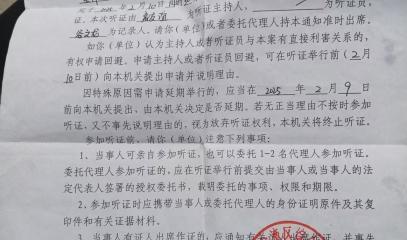 年2月10日
证。本次听证由 为听证主持人， 为听证员，
为记录人。请你（单位）或者委托代理人持本通知准时出席。
如你（单位）认为主持人或者听证员与本案有直接利害关系的，
有权申请回避。申请主持人或者听证员回避，可在听证举行前（2月
10日前）向本机关提出申请并说明理由。
因特殊原因需申请延期举行的，应当在 2025 年 2 月 9 日
前向本机关提出，由本机关决定是否延期。若无正当理由不按时参加
听证，又不事先说明理由的，视为放弃听证权利，本机关将终止听证。
参加听证前，请你（单位）注意下列事项：
1、当事人可亲自参加听证，也可以委托 1-2 名代理人参加听证。
委托代理人参加听证的，应在听证举行前提交由当事人或当事人的法
定代表人签署的授权委托书，载明委托的事项、权限和期限。
2、参加听证时应携带当事人或代理人的身份证明原件及其复
印件和有关证据材料。
3、当事人有证人出席作证的，应通知有 作证，并事先